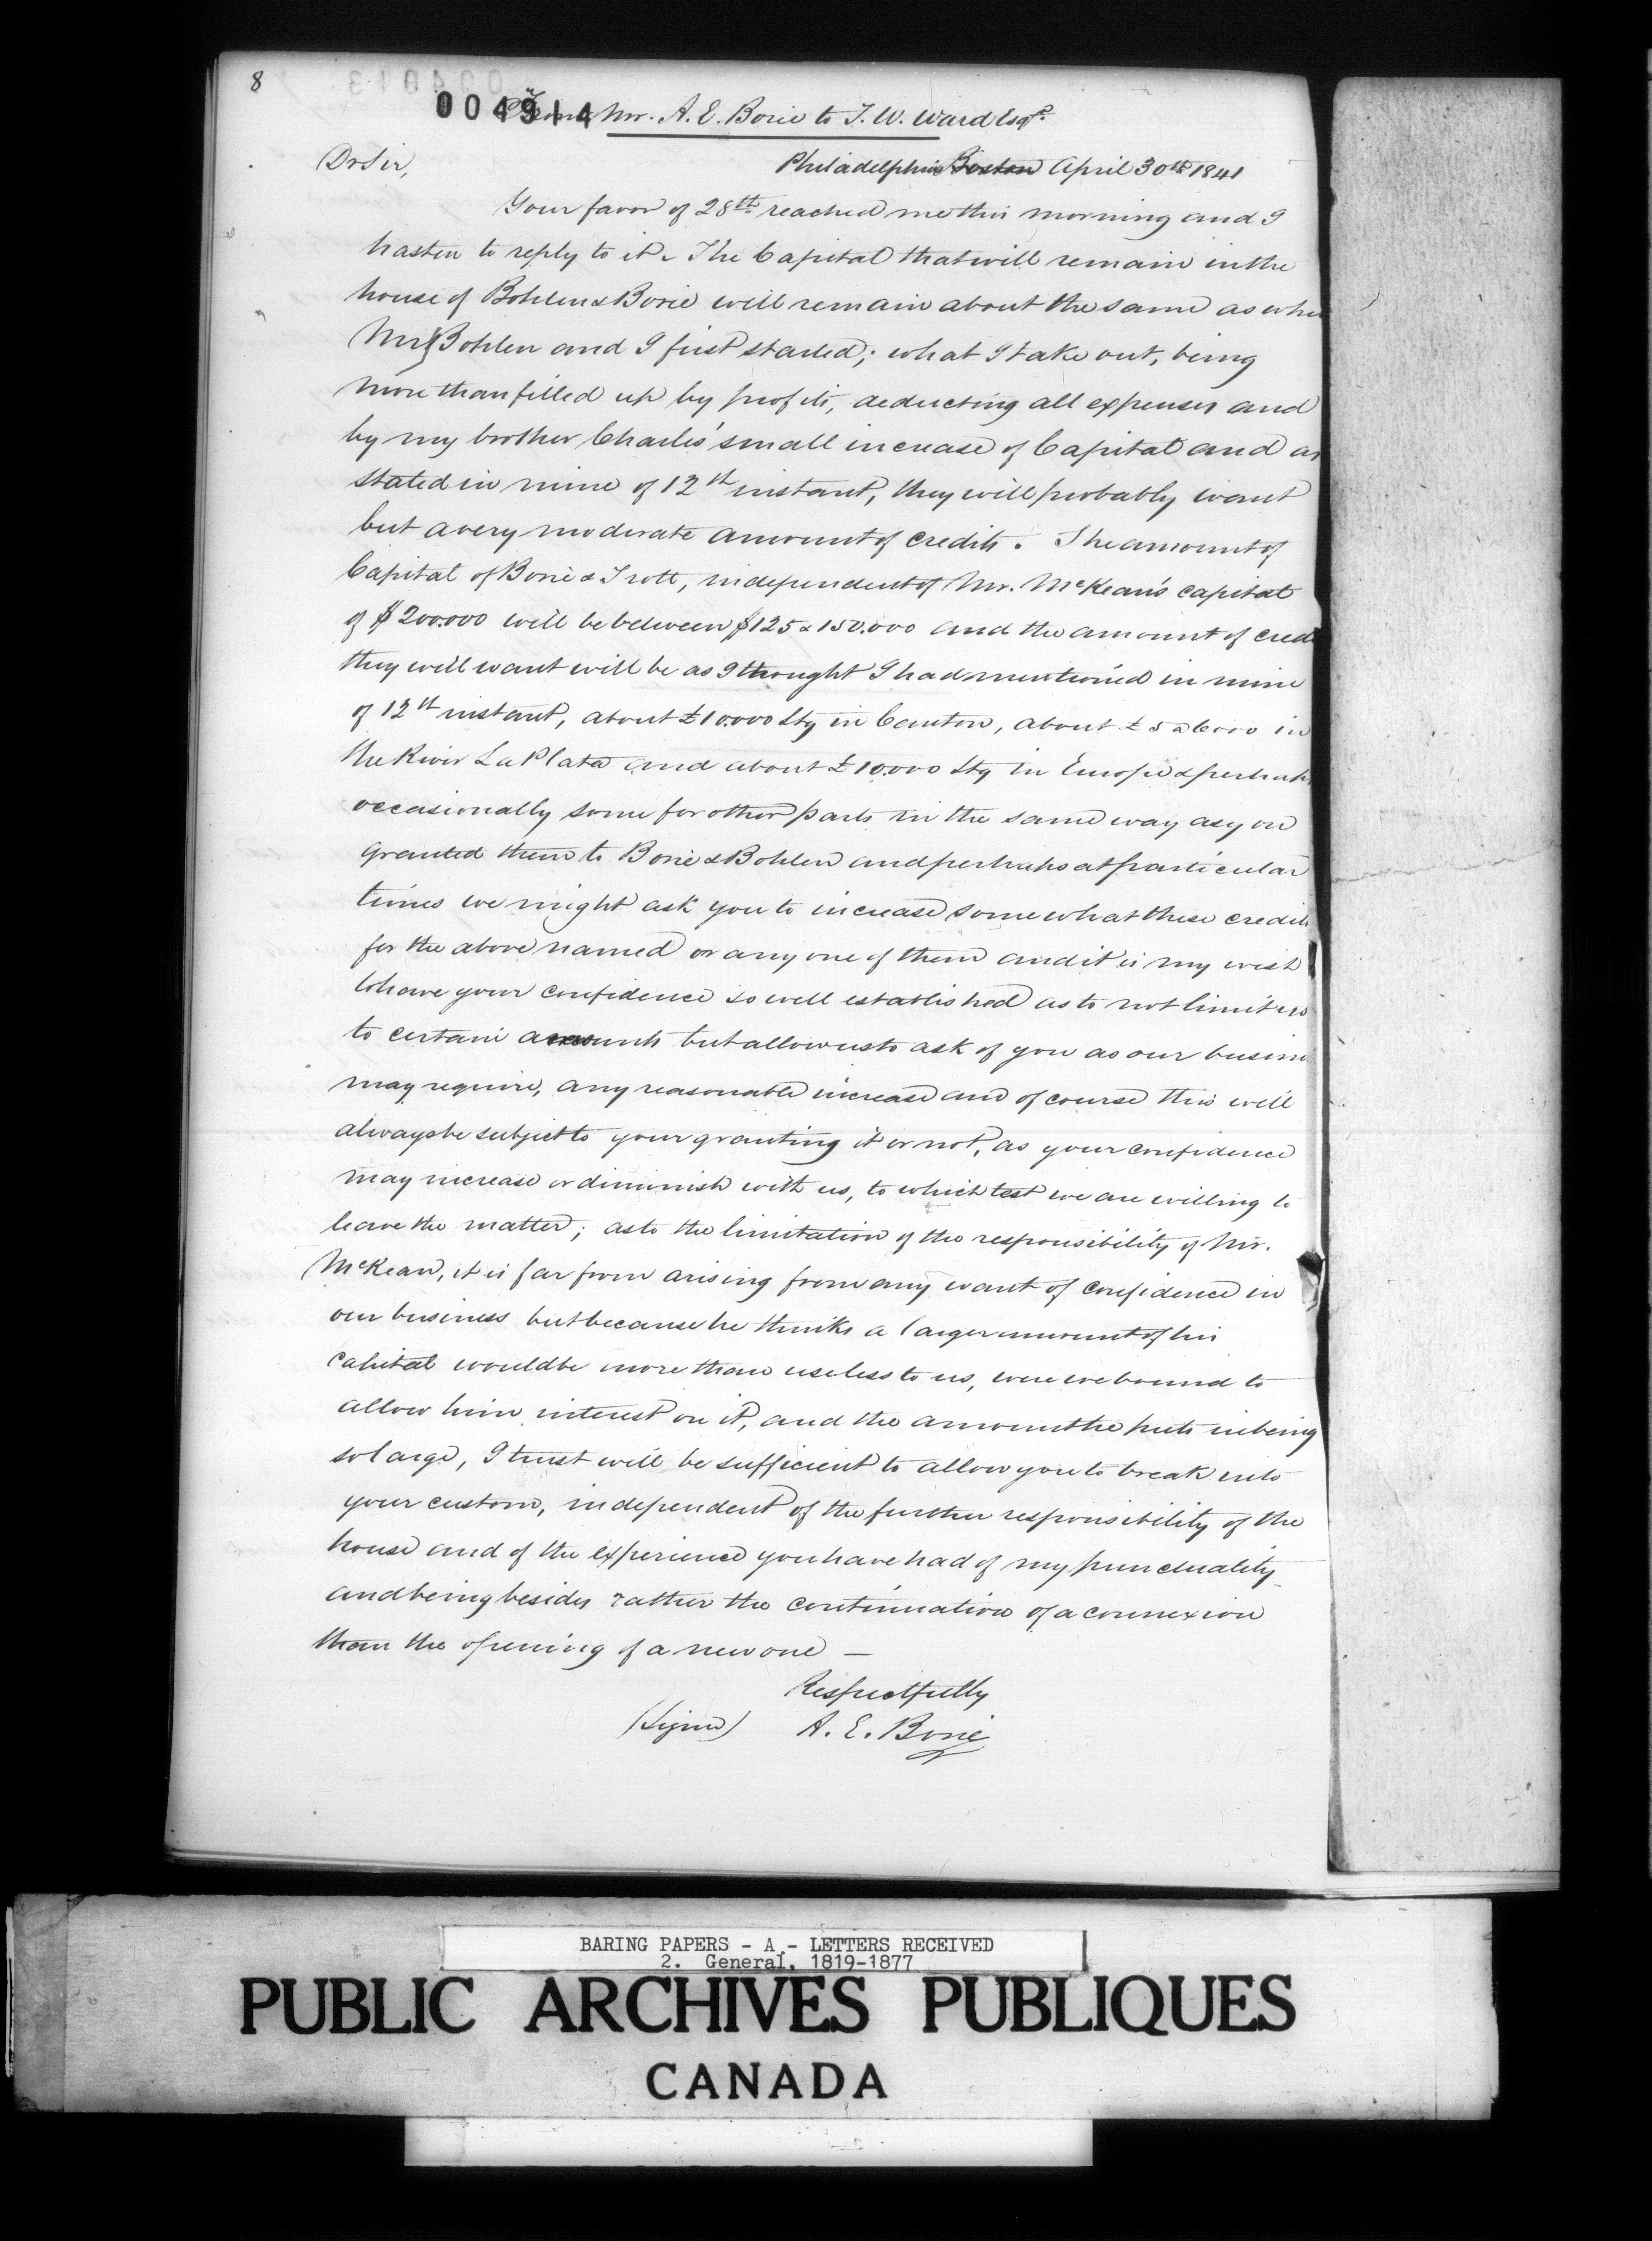 8
004914
From Mr. A. E. Borie to T. W. Ward Esqr.
Dr Sir,
Philadelphia Boston April 30th 1841
Your favor of 28th reached me this morning and I
hasten to reply to it. The Capital that will remain in the
house of Bohlen & Borie will remain about the same as when
Mr Bohlen and I first started; what I take out, being
more than filled up by profits, deducting all expenses and
by my brother Charles' small increase of Capital and as
stated in mine of 12th instant, they will probably want
but a very moderate amount of credits. The amount of
Capital of Borie & Trott, independent of Mr. McKean's capital
of $200.000 will be between $125 & 150.000 and the amount of cred
they will want will be as I thought I had mentioned in mine
of 12th instant, about £10.000 Stg in Canton, about £5 a 6000 in
the River La Plata and about £10.000 Stg in Europe & perhaps
occasionally some for other parts in the same way as you
granted them to Borie & Bohlen and perhaps at particular
times we might ask you to increase somewhat these credits
for the above named or any one of them and it is my wish
to have your confidence so well established as to not limit us
to certain amounts but allow us to ask of you as our busine
may require, any reasonable increase and of course this will
always be subject to your granting it or not, as your confidence
may increase or diminish with us, to which test we are willing to
leave the matter; as to the limitation of the responsibility of Mr.
McKean, it is far from arising from any want of confidence in
our business but because he thinks a larger amount of his
capital would be more than useless to us, were we bound to
allow him interest on it, and the amount he puts in being
so large, I trust will be sufficient to allow you to break into
your custom, independent of the further responsibility of the
house and of the experience you have had of my punctuality
and being besides rather the continuation of a connexion
than the opening of a new one —
Respectfully
(Signed) A. E. Borie
BARING PAPERS - A - LETTERS RECEIVED
2. General, 1819-1877
PUBLIC ARCHIVES PUBLIQUES
CANADA